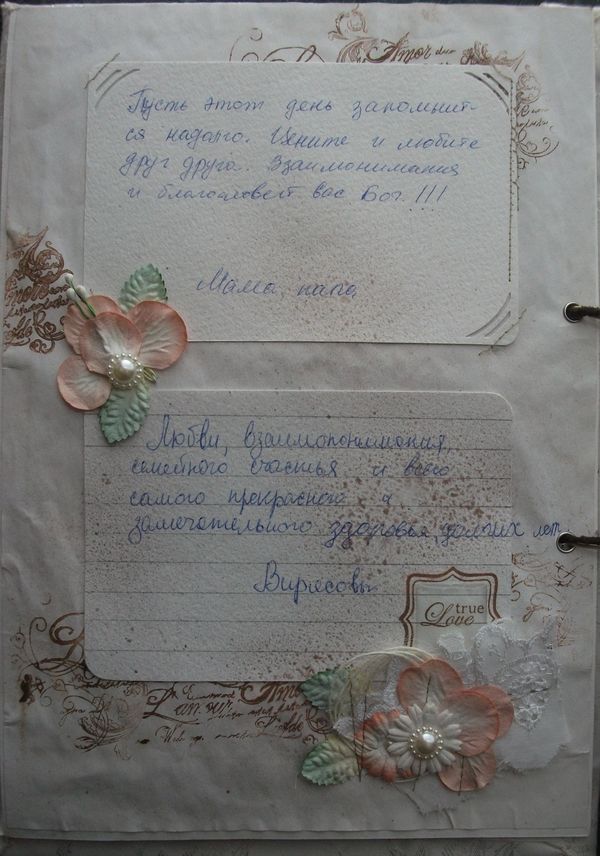 Amor
Пусть этот день запомнит-
ся надолго. Цените и любите
друг друга. Взаимонимания
и благословет вас Бог !!!
Мама, папа,
Любви, взаимопонимания,
семейного счастья и всего
самого прекрасного и
замечательного здоровья, долгих лет
Вирясовы
true
Love